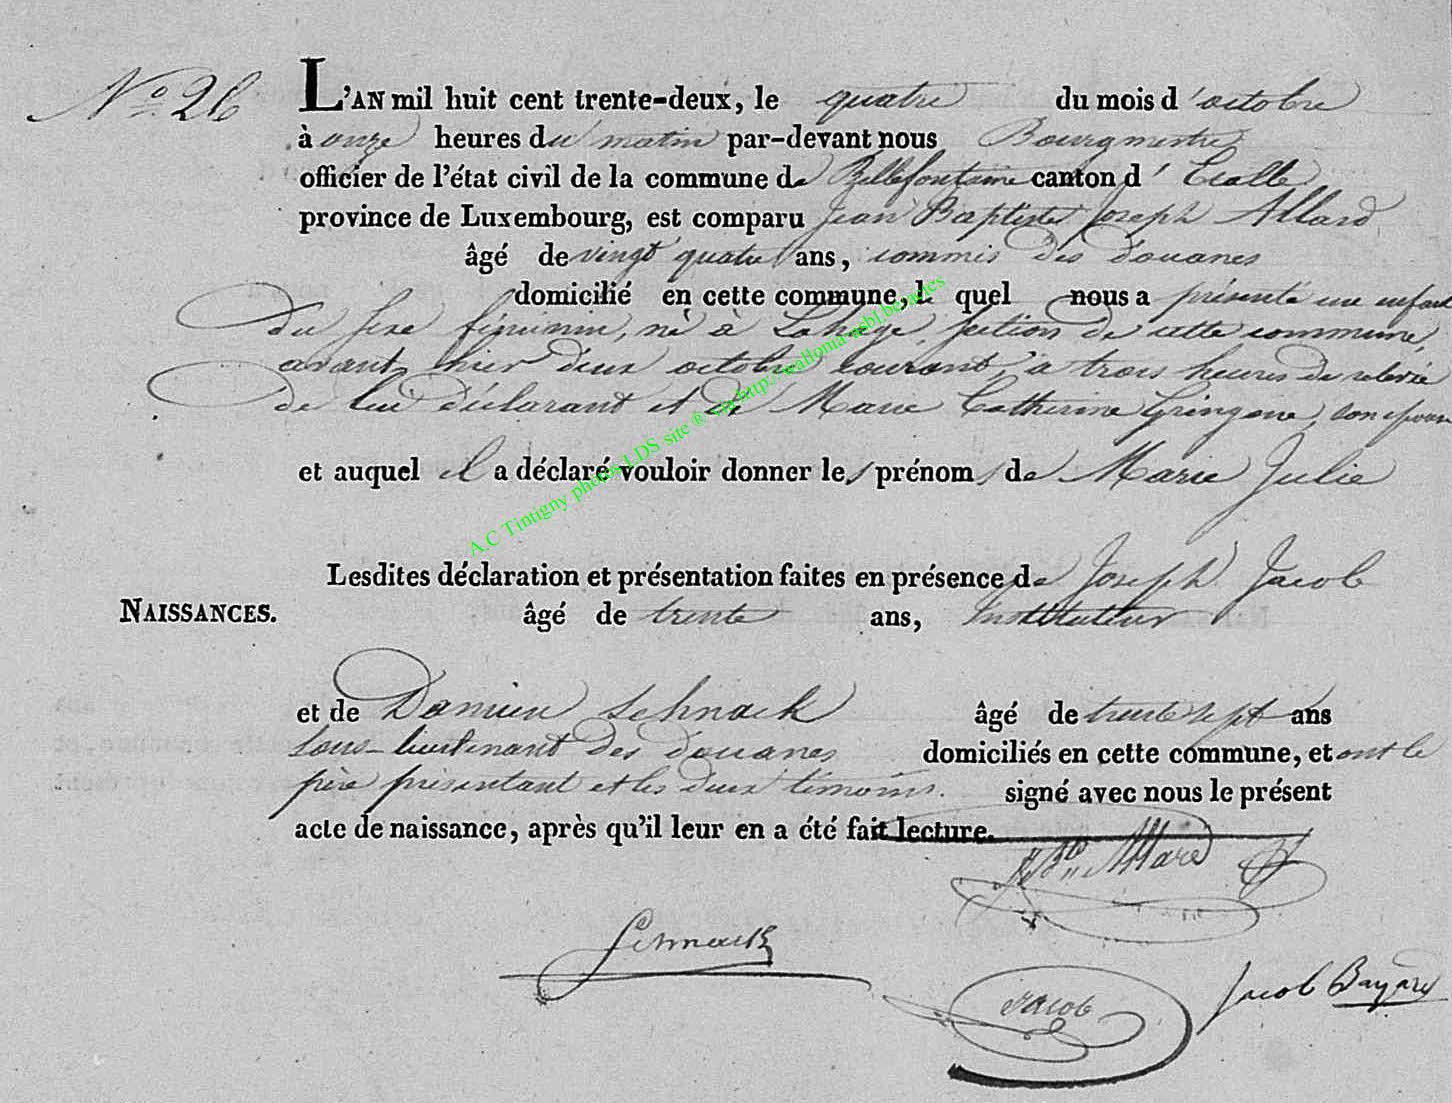 N.º 26
L'AN mil huit cent trente-deux, le quatre du mois d'octobre
à onze heures du matin par-devant nous Bourgmestre
officier de l'état civil de la commune de Bellefontaine canton d'Etalle
province de Luxembourg, est comparu Jean Baptiste Joseph Allard
âgé de vingt quatre ans, commis des douanes
domicilié en cette commune, lequel nous a présenté une enfant
du sexe féminin, né à Lahage, section de cette commune,
avant hier deux octobre courant, à trois heures de relevée
de lui déclarant et de Marie Catherine Gringone, son épouse
et auquel il a déclaré vouloir donner les prénoms de Marie Julie
Lesdites déclaration et présentation faites en présence de Joseph Jacob
NAISSANCES. âgé de trente ans, Instituteur
et de Damien Schnack âgé de trente sept ans
sous-lieutenant des douanes domiciliés en cette commune, et ont le
père présentant et les deux témoins. signé avec nous le présent
acte de naissance, après qu'il leur en a été fait lecture.
JBte Allard
Schnack
Jacob
Jacob Bayard
A.C Tintigny photos LDS site ® via http://wallonia-asbl.be/actes